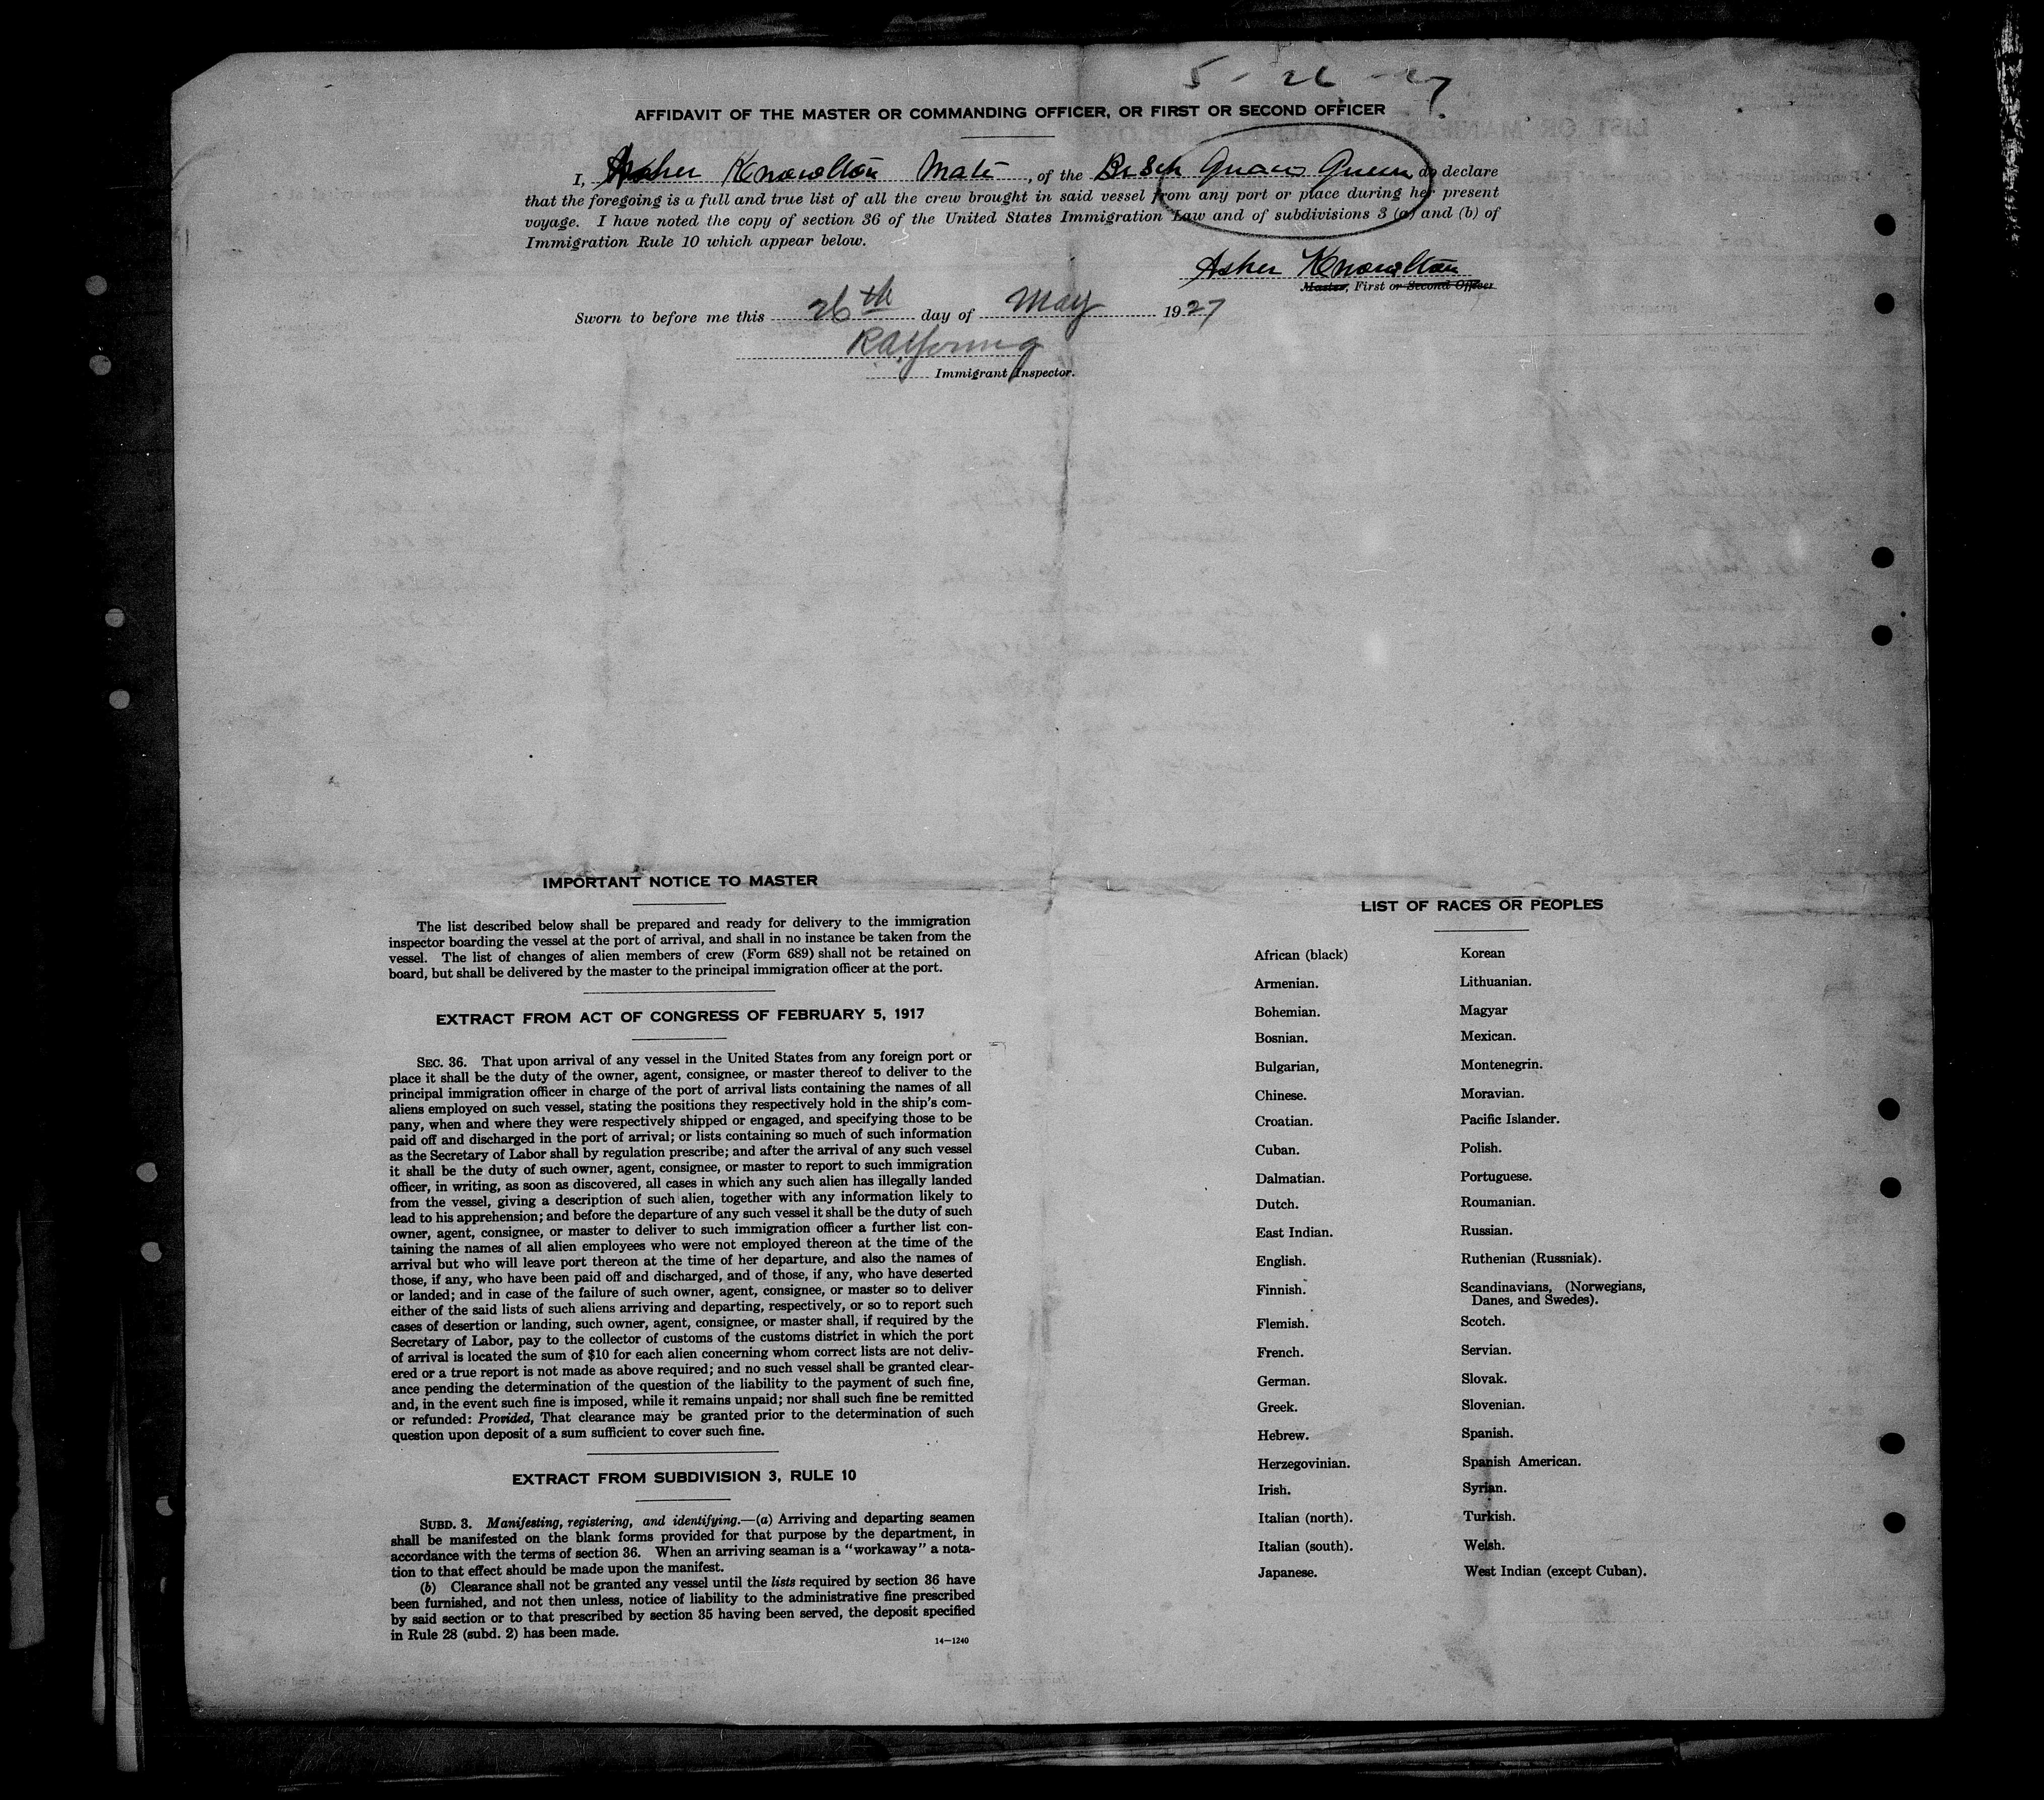 5 - 26 - 27
AFFIDAVIT OF THE MASTER OR COMMANDING OFFICER, OR FIRST OR SECOND OFFICER
I, Asher Knowlton Mate, of the Br Sch Queen do declare
that the foregoing is a full and true list of all the crew brought in said vessel from any port or place during her present
voyage. I have noted the copy of section 36 of the United States Immigration Law and of subdivisions 3 (a) and (b) of
Immigration Rule 10 which appear below.
Asher Knowlton
Master, First or Second Officer
Sworn to before me this 26th day of May 1927
RA Young
Immigrant Inspector.
IMPORTANT NOTICE TO MASTER
The list described below shall be prepared and ready for delivery to the immigration
inspector boarding the vessel at the port of arrival, and shall in no instance be taken from the
vessel. The list of changes of alien members of crew (Form 689) shall not be retained on
board, but shall be delivered by the master to the principal immigration officer at the port.
EXTRACT FROM ACT OF CONGRESS OF FEBRUARY 5, 1917
SEC. 36. That upon arrival of any vessel in the United States from any foreign port or
place it shall be the duty of the owner, agent, consignee, or master thereof to deliver to the
principal immigration officer in charge of the port of arrival lists containing the names of all
aliens employed on such vessel, stating the positions they respectively hold in the ship's com-
pany, when and where they were respectively shipped or engaged, and specifying those to be
paid off and discharged in the port of arrival; or lists containing so much of such information
as the Secretary of Labor shall by regulation prescribe; and after the arrival of any such vessel
it shall be the duty of such owner, agent, consignee, or master to report to such immigration
officer, in writing, as soon as discovered, all cases in which any such alien has illegally landed
from the vessel, giving a description of such alien, together with any information likely to
lead to his apprehension; and before the departure of any such vessel it shall be the duty of such
owner, agent, consignee, or master to deliver to such immigration officer a further list con-
taining the names of all alien employees who were not employed thereon at the time of the
arrival but who will leave port thereon at the time of her departure, and also the names of
those, if any, who have been paid off and discharged, and of those, if any, who have deserted
or landed; and in case of the failure of such owner, agent, consignee, or master so to deliver
either of the said lists of such aliens arriving and departing, respectively, or so to report such
cases of desertion or landing, such owner, agent, consignee, or master shall, if required by the
Secretary of Labor, pay to the collector of customs of the customs district in which the port
of arrival is located the sum of $10 for each alien concerning whom correct lists are not deliv-
ered or a true report is not made as above required; and no such vessel shall be granted clear-
ance pending the determination of the question of the liability to the payment of such fine,
and, in the event such fine is imposed, while it remains unpaid; nor shall such fine be remitted
or refunded: Provided, That clearance may be granted prior to the determination of such
question upon deposit of a sum sufficient to cover such fine.
EXTRACT FROM SUBDIVISION 3, RULE 10
SUBD. 3. Manifesting, registering, and identifying.—(a) Arriving and departing seamen
shall be manifested on the blank forms provided for that purpose by the department, in
accordance with the terms of section 36. When an arriving seaman is a "workaway" a nota-
tion to that effect should be made upon the manifest.
(b) Clearance shall not be granted any vessel until the lists required by section 36 have
been furnished, and not then unless, notice of liability to the administrative fine prescribed
by said section or to that prescribed by section 35 having been served, the deposit specified
in Rule 28 (subd. 2) has been made.
14—1240
LIST OF RACES OR PEOPLES
African (black)
Armenian.
Bohemian.
Bosnian.
Bulgarian,
Chinese.
Croatian.
Cuban.
Dalmatian.
Dutch.
East Indian.
English.
Finnish.
Flemish.
French.
German.
Greek.
Hebrew.
Herzegovinian.
Irish.
Italian (north).
Italian (south).
Japanese.
Korean
Lithuanian.
Magyar
Mexican.
Montenegrin.
Moravian.
Pacific Islander.
Polish.
Portuguese.
Roumanian.
Russian.
Ruthenian (Russniak).
Scandinavians, (Norwegians,
Danes, and Swedes).
Scotch.
Servian.
Slovak.
Slovenian.
Spanish.
Spanish American.
Syrian.
Turkish.
Welsh.
West Indian (except Cuban).